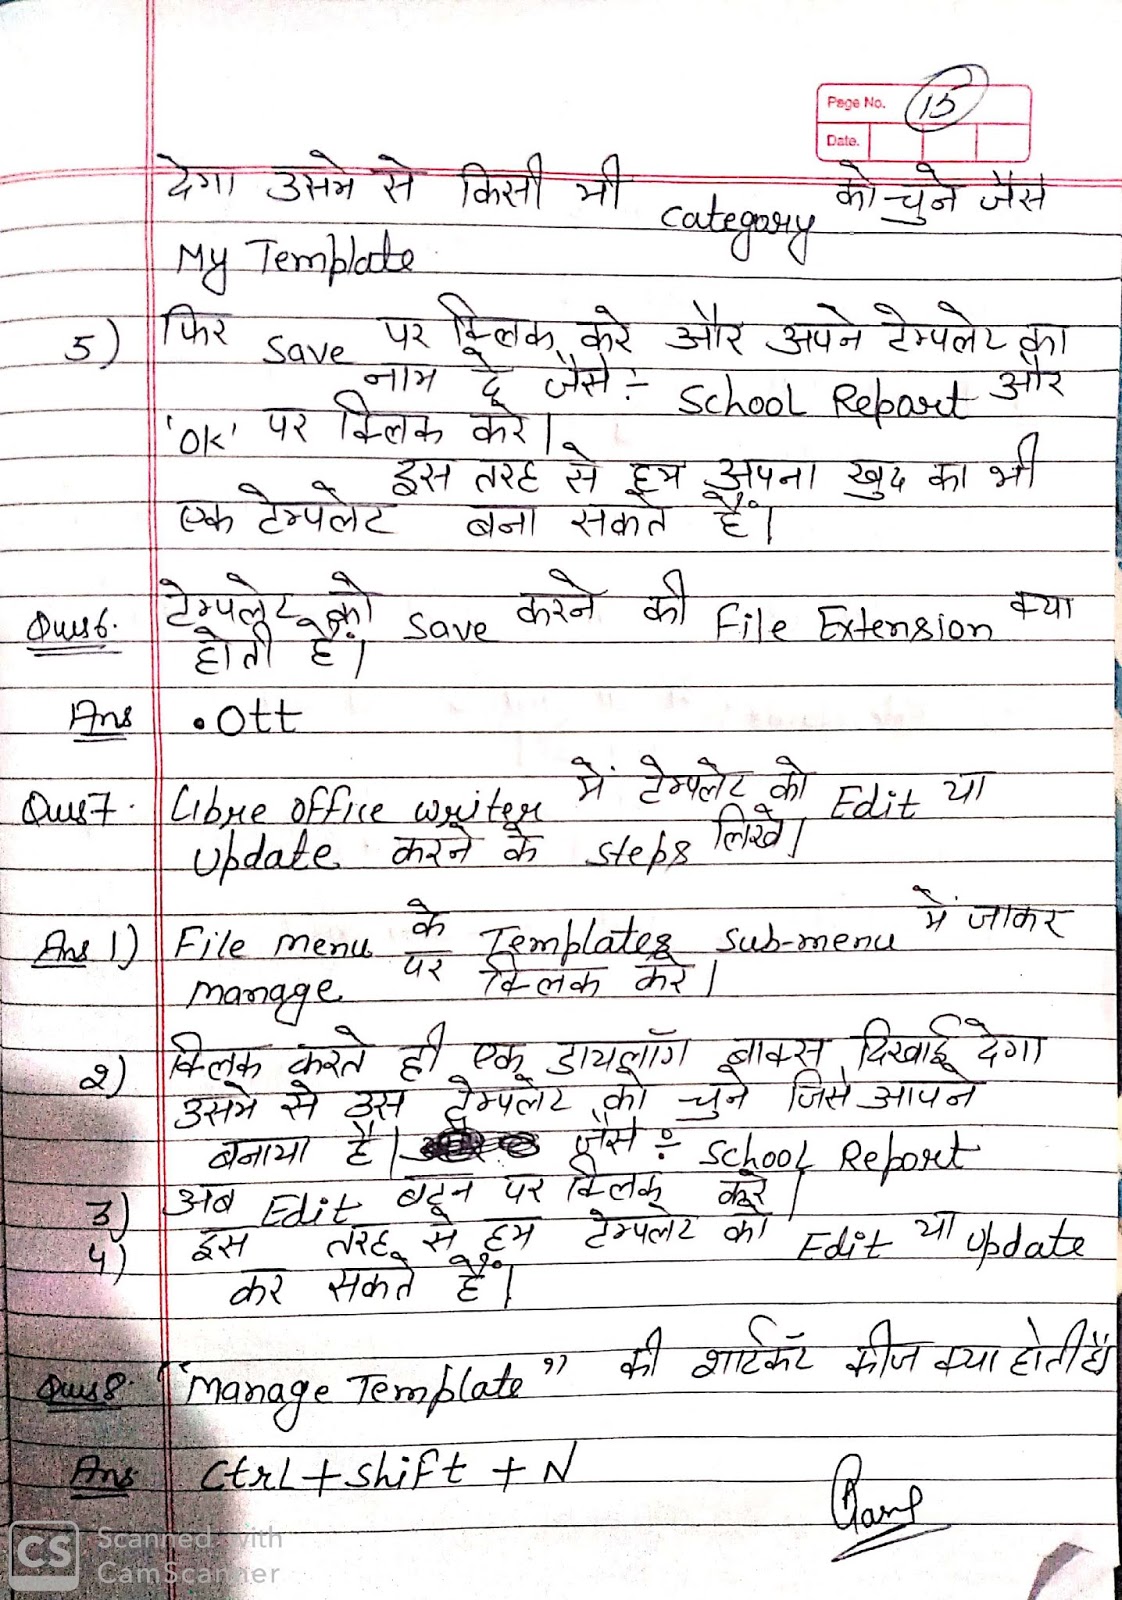 Page No. 15
Date.
देगा उसमे से किसी भी category को चुने जैसे
My Template
5) फिर Save पर क्लिक करे और अपने टेम्पलेट का
नाम दे जैसे :- School Report और
'OK' पर क्लिक करे।
इस तरह से हम अपना खुद का भी
एक टेम्पलेट बना सकते हैं।
Ques6. टेम्पलेट को Save करने की File Extension क्या
होती है।
Ans .Ott
Ques7. Libre office writer में टेम्पलेट को Edit या
Update करने के steps लिखे।
Ans 1) File menu के Templates sub-menu में जाकर
manage पर क्लिक करे।
2) क्लिक करते ही एक डायलॉग बाक्स दिखाई देगा
उसमे से उस टेम्पलेट को चुने जिसे आपने
बनाया है। जैसे :- School Report
3) अब Edit बटन पर क्लिक करे।
4) इस तरह से हम टेम्पलेट को Edit या Update
कर सकते हैं।
Ques8. "Manage Template" की शार्टकट कीज क्या होती है।
Ans Ctrl + Shift + N
CS Scanned with
CamScanner